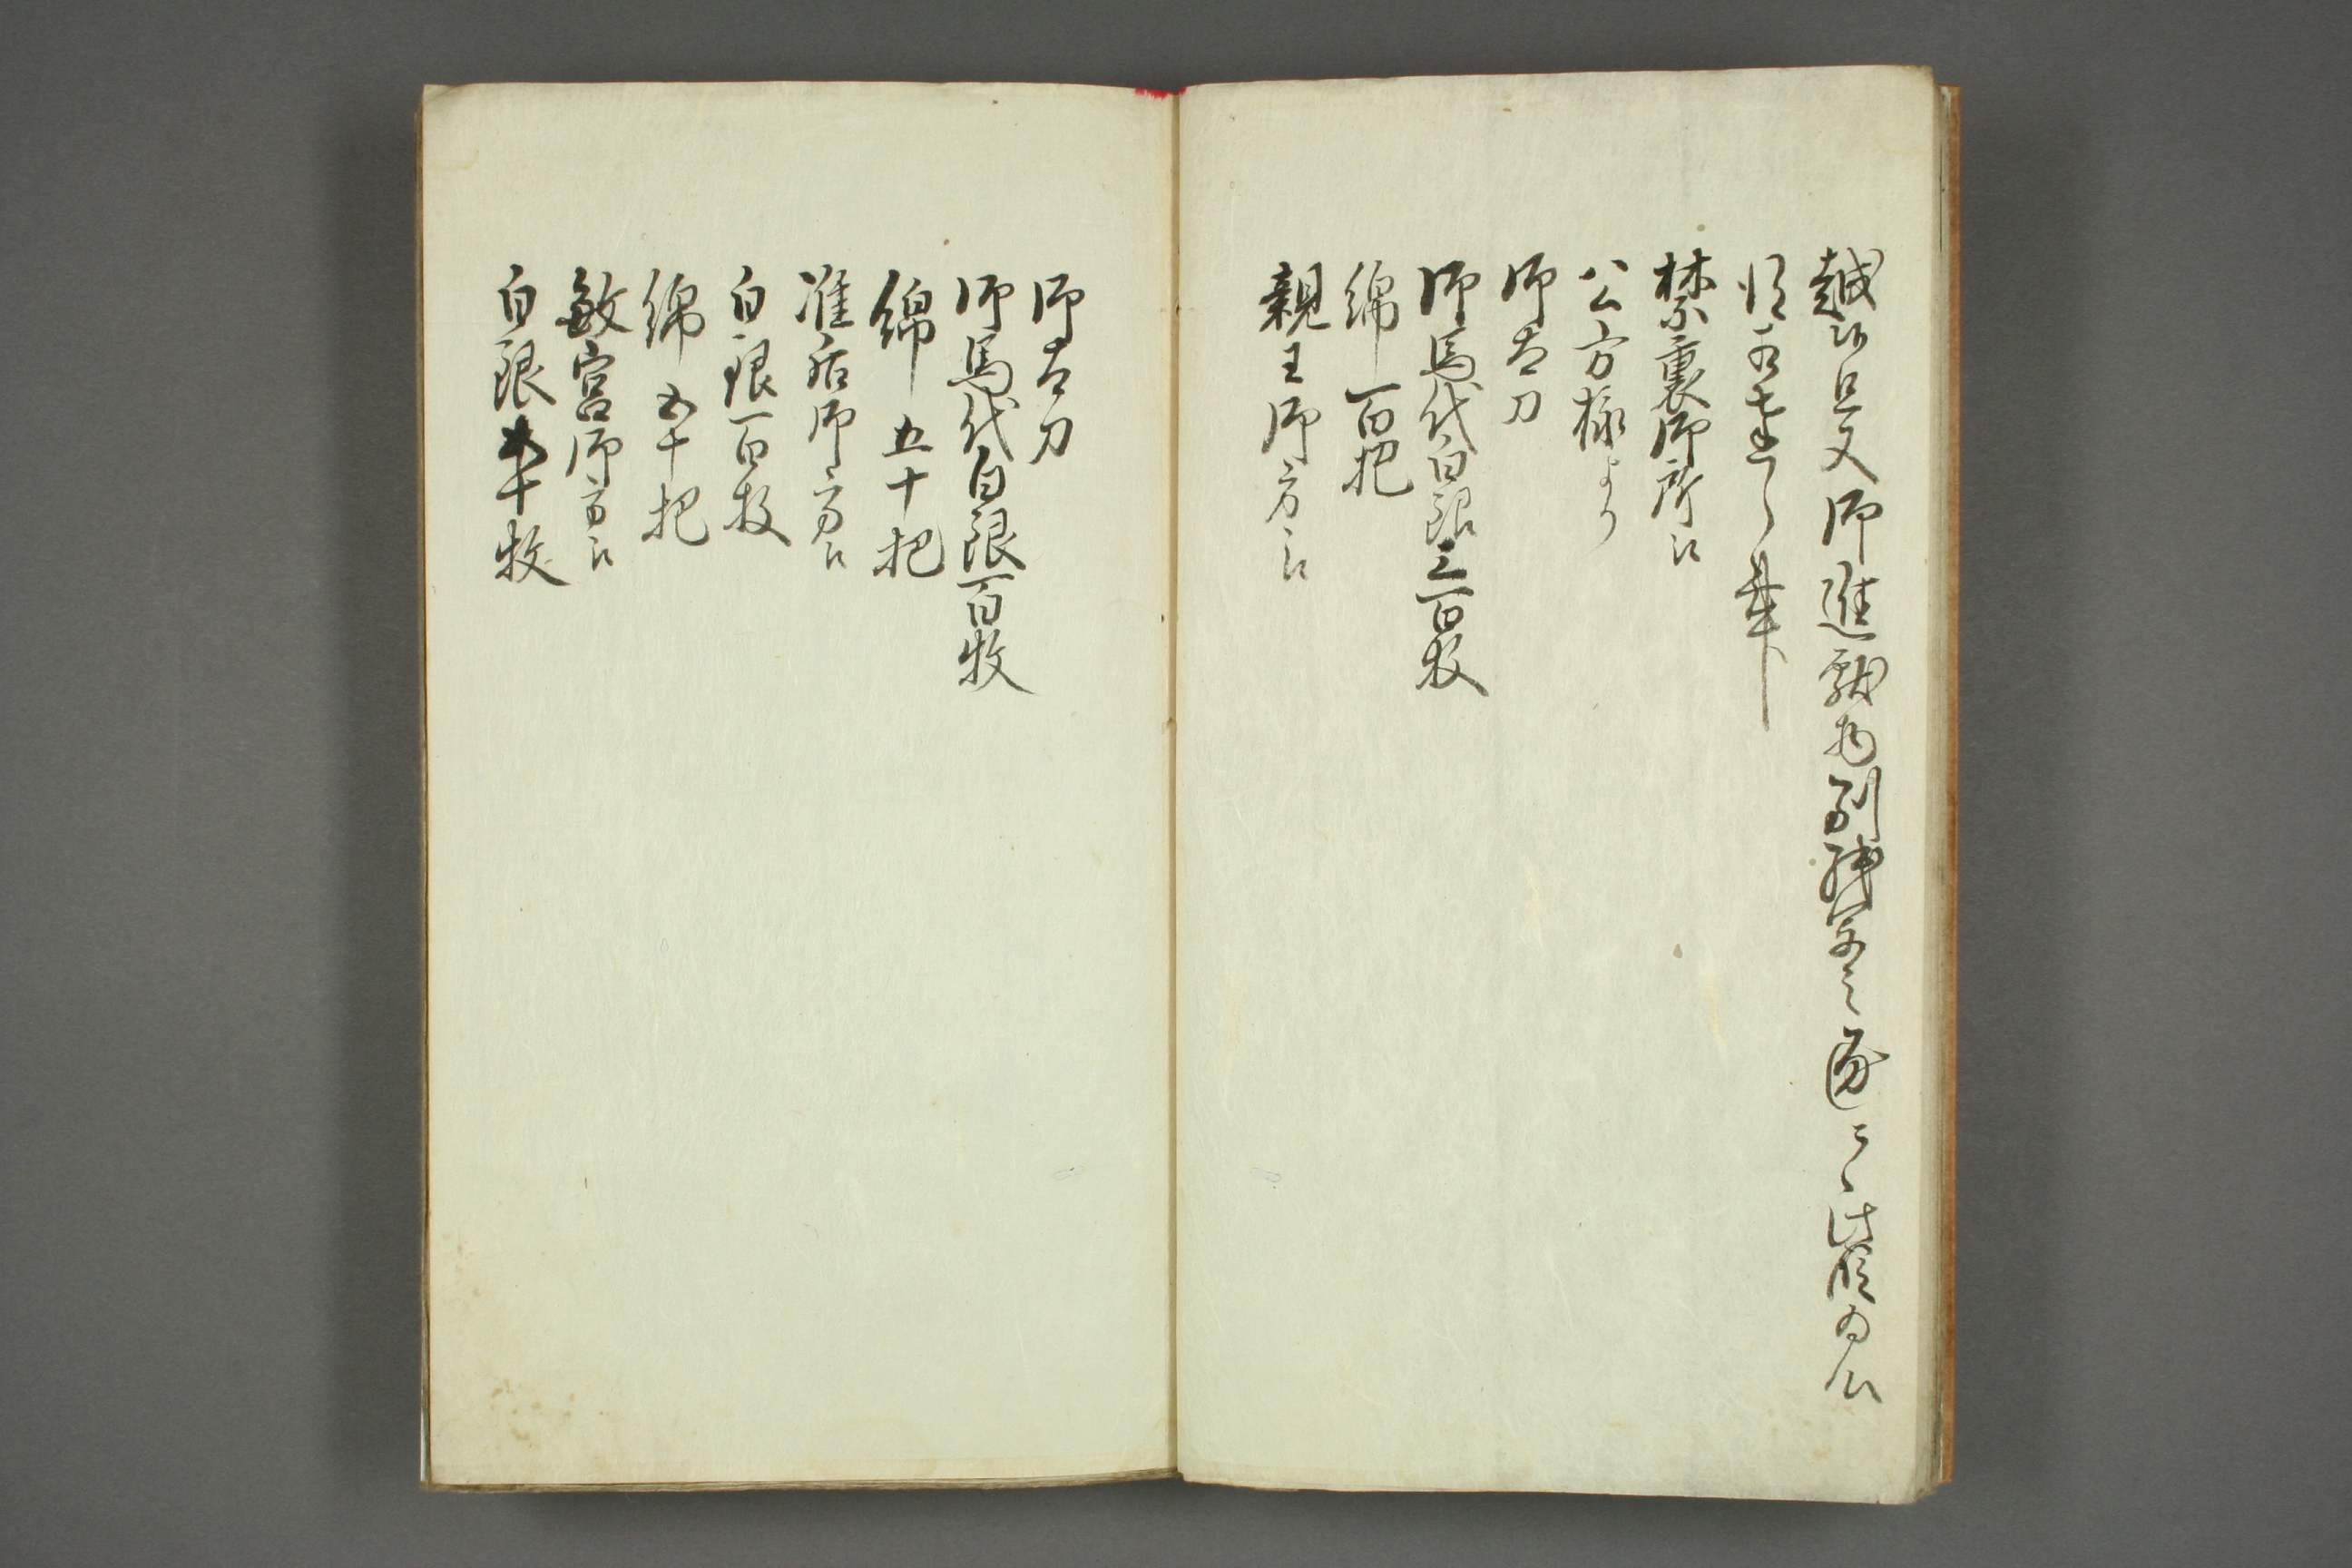 越候且又御進献物別紙写之通ニ候此段為心
得可申達旨
禁裏御所江
公方様より
御太刀
御馬代白銀三百枚
綿一百把
親王御方江
御太刀
御馬代白銀一百枚
綿五十把
准后御方江
白銀一百枚
綿五十把
敏宮御方江
白銀五十枚